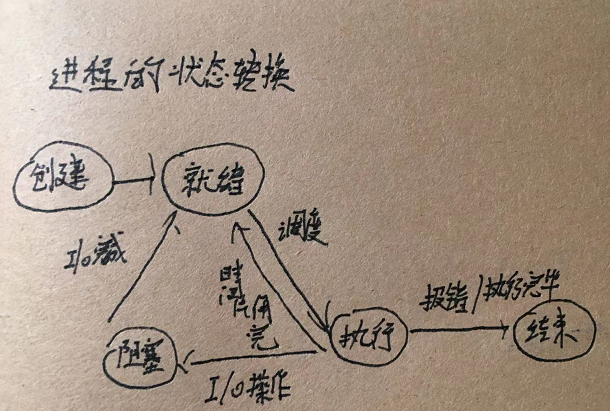 进程的状态转换
创建
就绪
调度
I/o
时间片用完
报错/执行完毕
阻塞
执行
结束
I/O操作